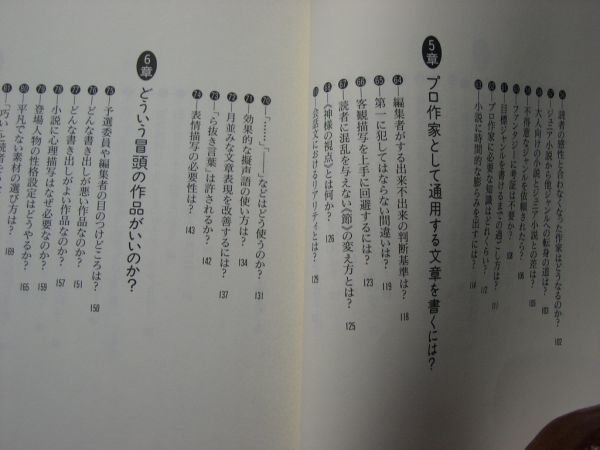 読者の感性と合わなくなった作家はどうなるのか? 102
ジュニア小説から他ジャンルへの転身の道は? 103
大人向けの小説とジュニア小説との差は? 105
不得意なジャンルを依頼されたら? 106
ファンタジーに考証は不要か? 108
目標ジャンルを書けるまでの過ごし方は?
プロ作家に必要な知識はどれくらい? 112
小説に時間的な膨らみを出すには? 114
5章 プロ作家として通用する文章を書くには? 117
64 編集者がする出来不出来の判断基準は? 118
65 第一に犯してはならない間違いは? 119
66 客観描写を上手に回避するには? 123
67 読者に混乱を与えない《節》の変え方とは? 125
68 《神様の視点》とは何か? 126
会話文におけるリアリティとは? 129
70 「……」「――」などはどう使うのか? 131
71 効果的な擬声語の使い方は? 134
72 月並みな文章表現を改善するには? 137
73 「ら抜き言葉」は許されるか? 142
74 表情描写の必要性は? 143
6章 どういう冒頭の作品がいいのか?
75 予選委員や編集者の目のつけどころは? 150
76 どんな書き出しが悪い作品なのか? 151
77 どんな書き出しがよい作品なのか? 157
78 小説に心理描写はなぜ必要なのか? 159
79 登場人物の性格設定はどうやるか? 165
80 平凡でない素材の選び方は? 169
81